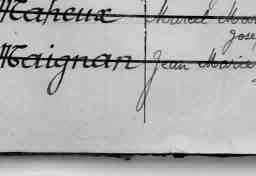 Maheux Marcel Mar
Jose
Maignan Jean Marie